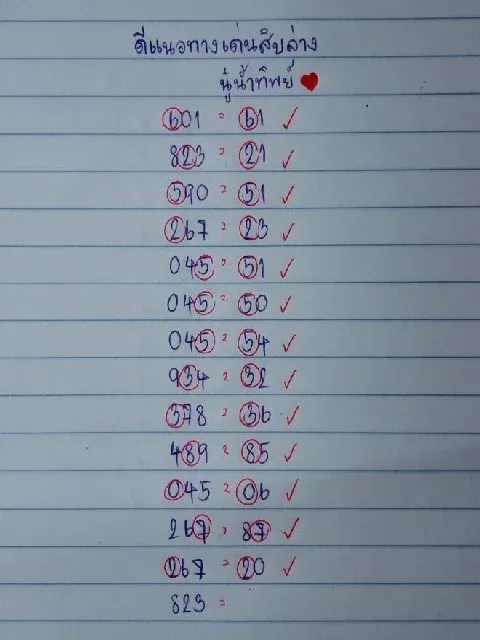 ดีแนวทางเด่นสิบล่าง
นู๋น้ำทิพย์
601 = 61
823 = 21
590 = 51
267 = 23
045 = 51
045 = 50
045 = 54
934 = 32
378 = 36
489 = 85
045 = 06
267 = 87
267 = 20
823 =